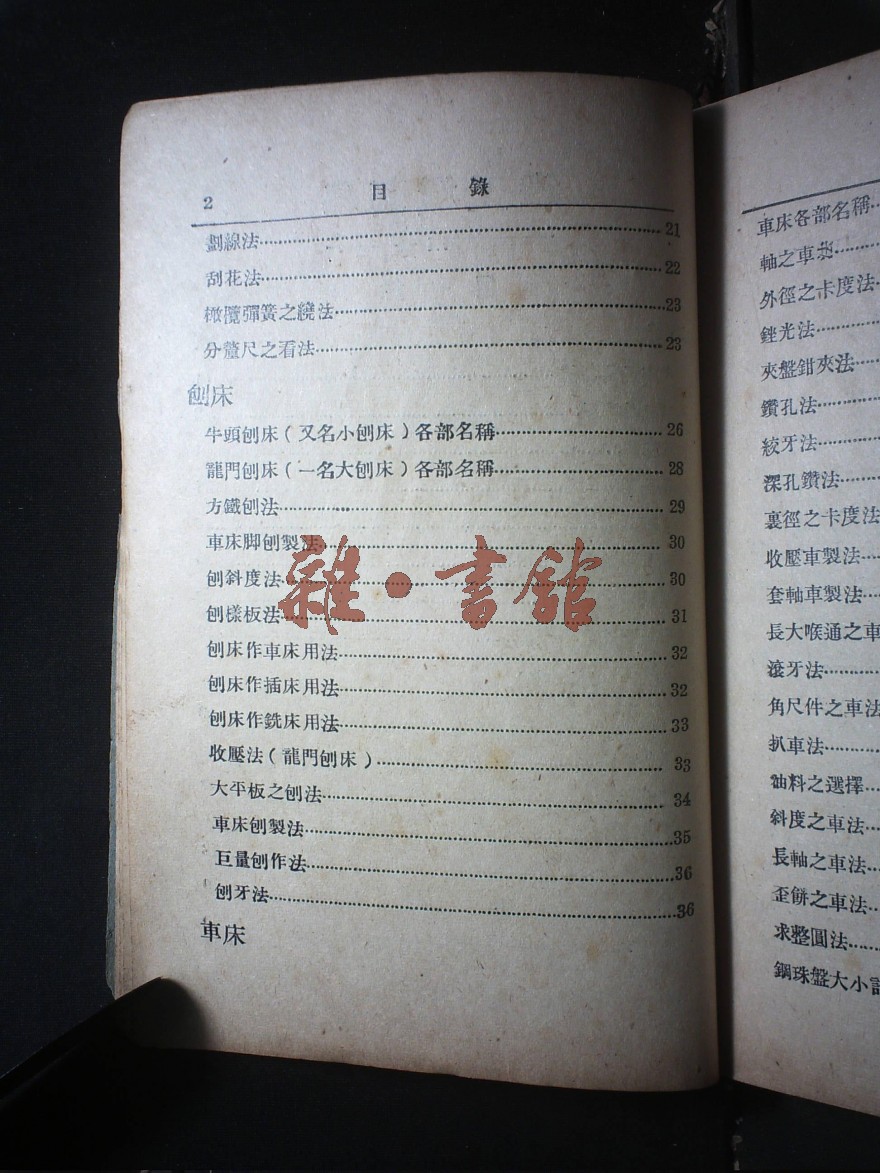 2 目 錄
劃線法 21
刮花法 22
橄欖彈簧之繞法 23
分釐尺之看法 23
刨床
牛頭刨床(又名小刨床)各部名稱 26
龍門刨床(一名大刨床)各部名稱 28
方鐵刨法 29
車床脚刨製法 30
刨斜度法 30
刨樣板法 31
刨床作車床用法 32
刨床作插床用法 32
刨床作銑床用法 33
收壓法(龍門刨床) 33
大平板之刨法 34
車床刨製法 35
巨量刨作法 36
刨牙法 36
車床
雜·書館
車床各部名稱
軸之車法
外徑之卡度法
銼光法
夾盤鉗夾法
鑽孔法
絞牙法
深孔鑽法
裏徑之卡度法
收壓車製法
套軸車製法
長大喉通之車
滾牙法
角尺件之車法
扒車法
油料之選擇
斜度之車法
長軸之車法
歪餅之車法
求整圓法
鋼珠盤大小